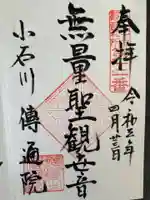 奉拝
令和五年
四月廿三日
無量聖観世音
小石川 傳通院